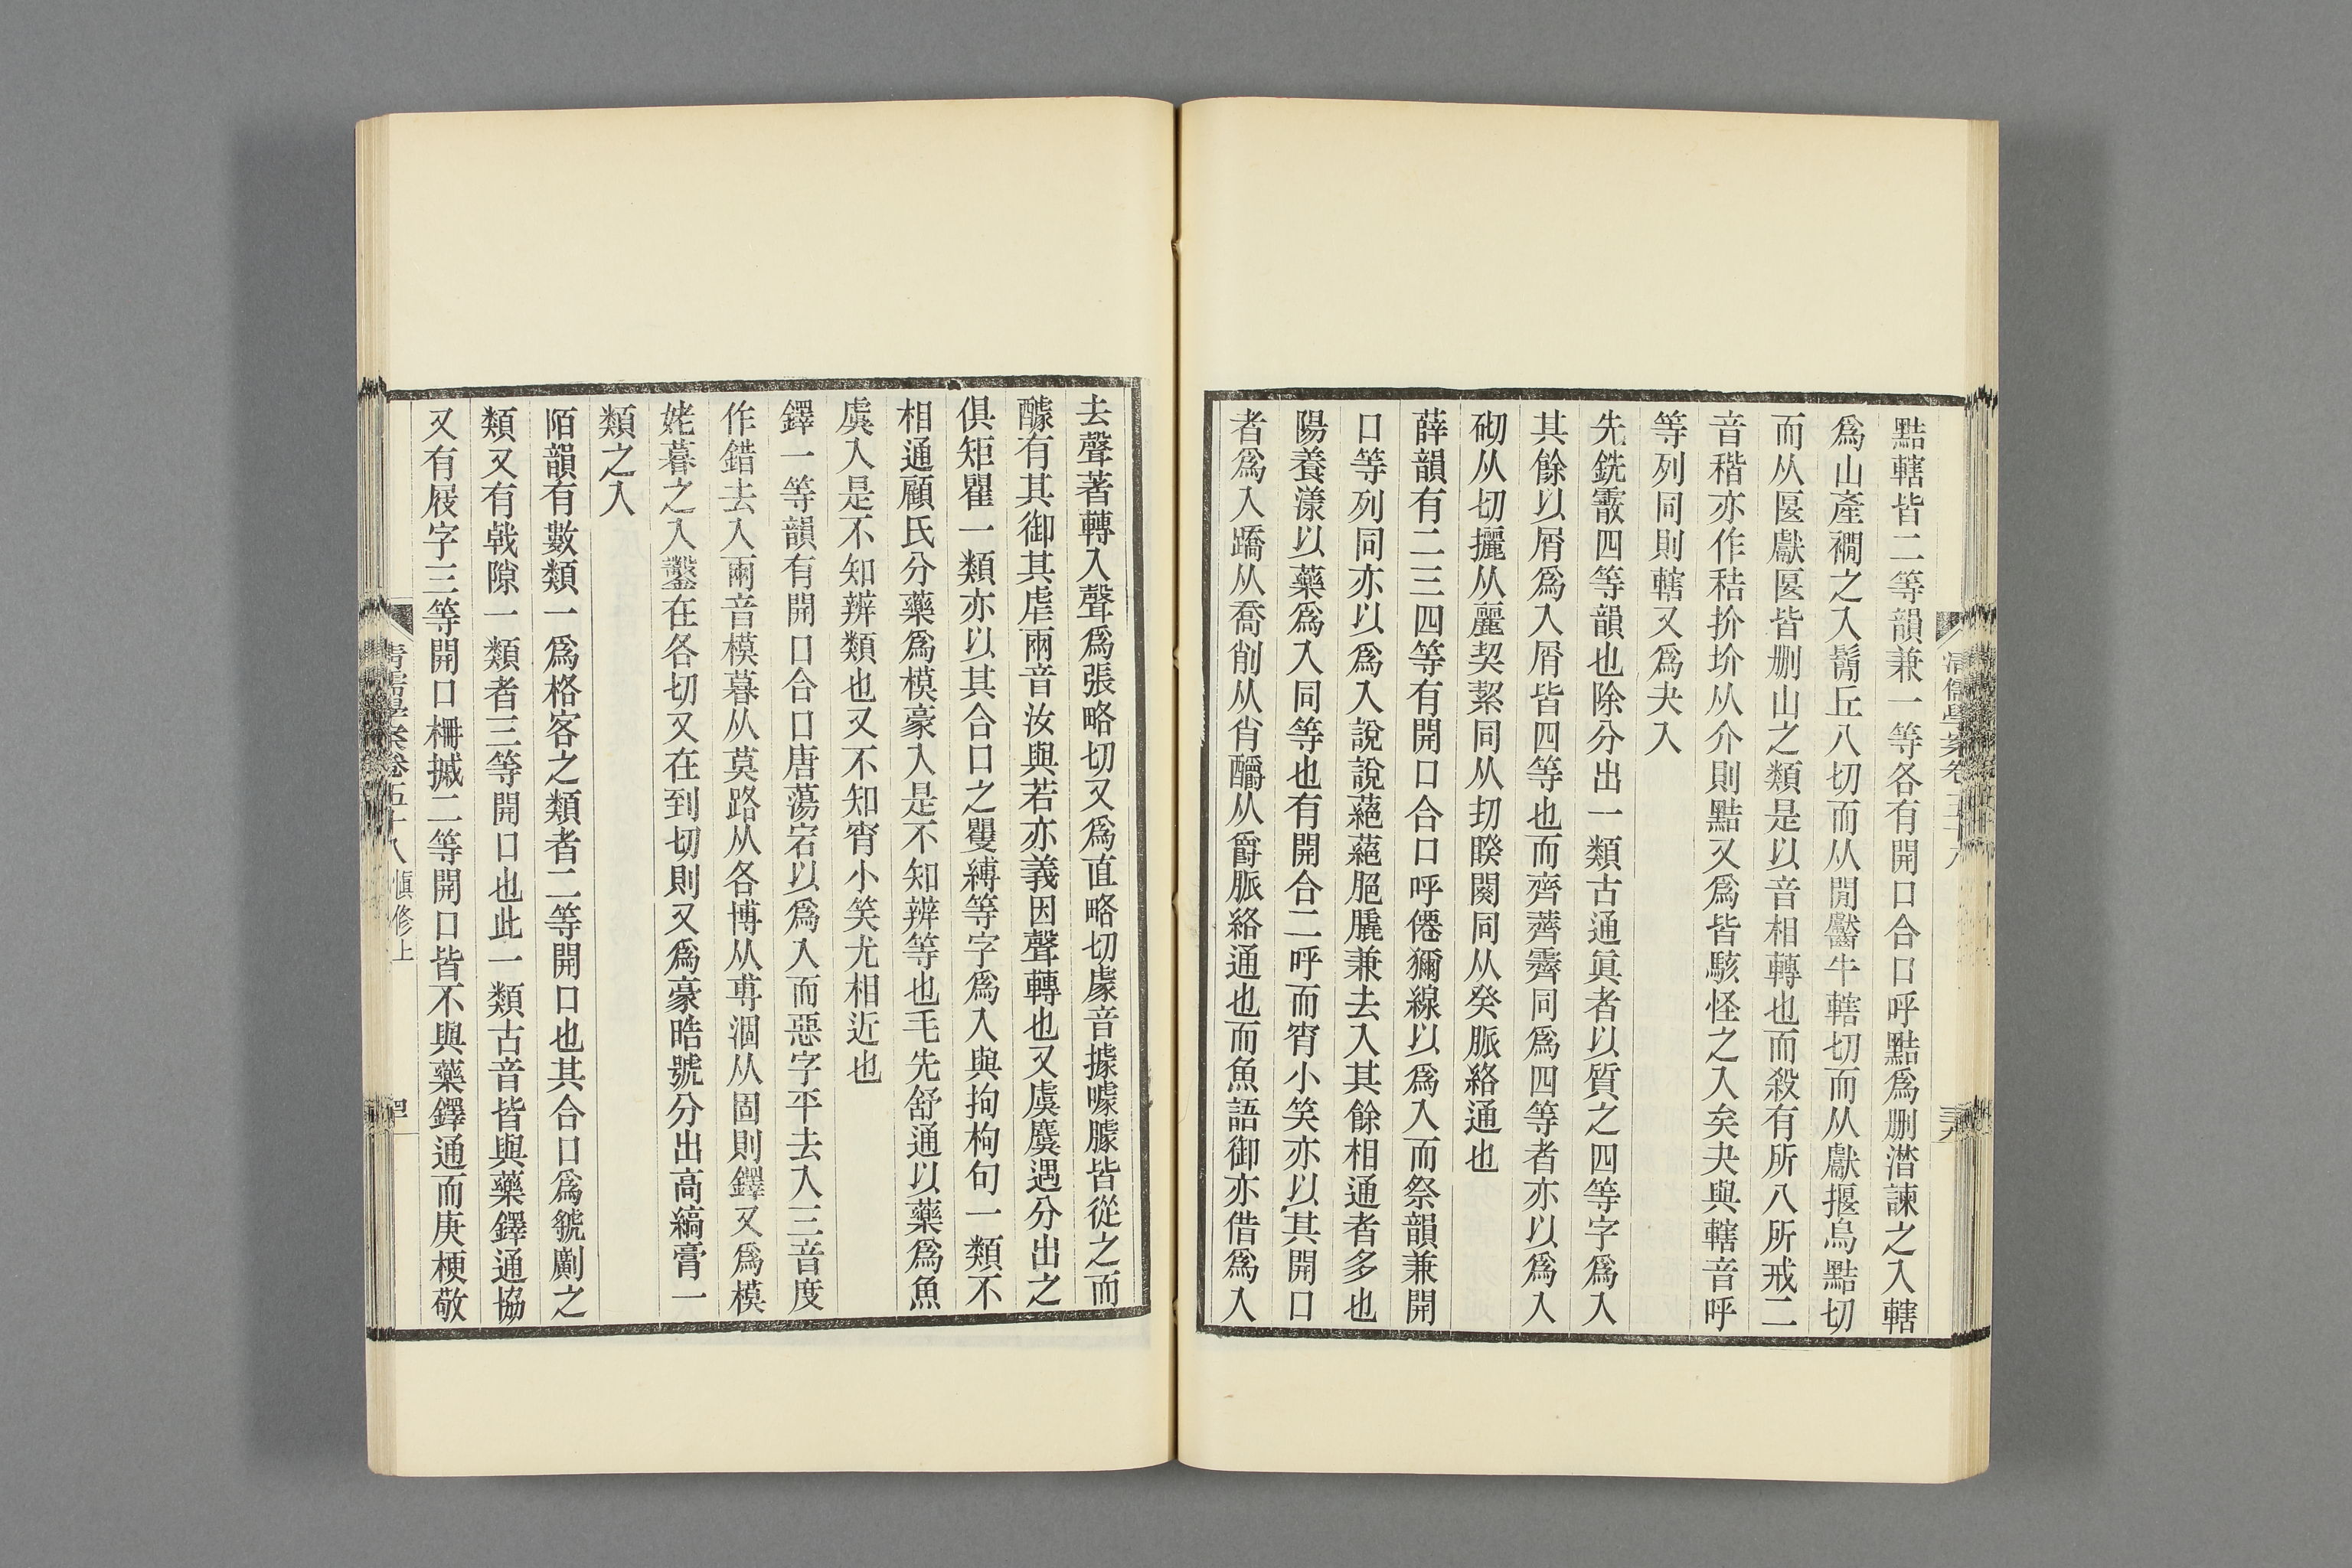 黠轄皆二等韻兼一等各有開口合口呼黠爲删潸諫之入轄
爲山產襉之入鬜丘八切而从閒齾牛轄切而从獻揠烏黠切
而从匽獻匽皆删山之類是以音相轉也而殺有所八所戒二
音稭亦作秸扴圿从介則黠又爲皆駭怪之入矣夬與轄音呼
等列同則轄又爲夬入
先銑霰四等韻也除分出一類古通眞者以質之四等字爲入
其餘以屑爲入屑皆四等也而齊薺霽同爲四等者亦以爲入
砌从切攦从麗契絜同从㓞睽闋同从癸脈絡通也
薛韻有二三四等有開口合口呼僊獮線以爲入而祭韻兼開
口等列同亦以爲入說說蕝蕝脃膬兼去入其餘相通者多也
陽養漾以藥爲入同等也有開合二呼而宵小笑亦以其開口
者爲入蹻从喬削从肖釂从爵脈絡通也而魚語御亦借爲入
清儒學案卷五十八
三十九
去聲著轉入聲爲張略切又爲直略切豦音據噱臄皆從之而
醵有其御其虐兩音汝與若亦義因聲轉也又虞麌遇分出之
俱矩瞿一類亦以其合口之矍縛等字爲入與拘枸句一類不
相通顧氏分藥爲模豪入是不知辨等也毛先舒通以藥爲魚
虞入是不知辨類也又不知宵小笑尤相近也
鐸一等韻有開口合口唐蕩宕以爲入而惡字平去入三音度
作錯去入兩音模暮从莫路从各博从尃涸从固則鐸又爲模
姥暮之入鑿在各切又在到切則又爲豪晧號分出高縞膏一
類之入
陌韻有數類一爲格客之類者二等開口也其合口爲虢劃之
類又有戟隙一類者三等開口也此一類古音皆與藥鐸通協
又有屐字三等開口柵摵二等開口皆不與藥鐸通而庚梗敬
清儒學案卷五十八　慎修上
四十